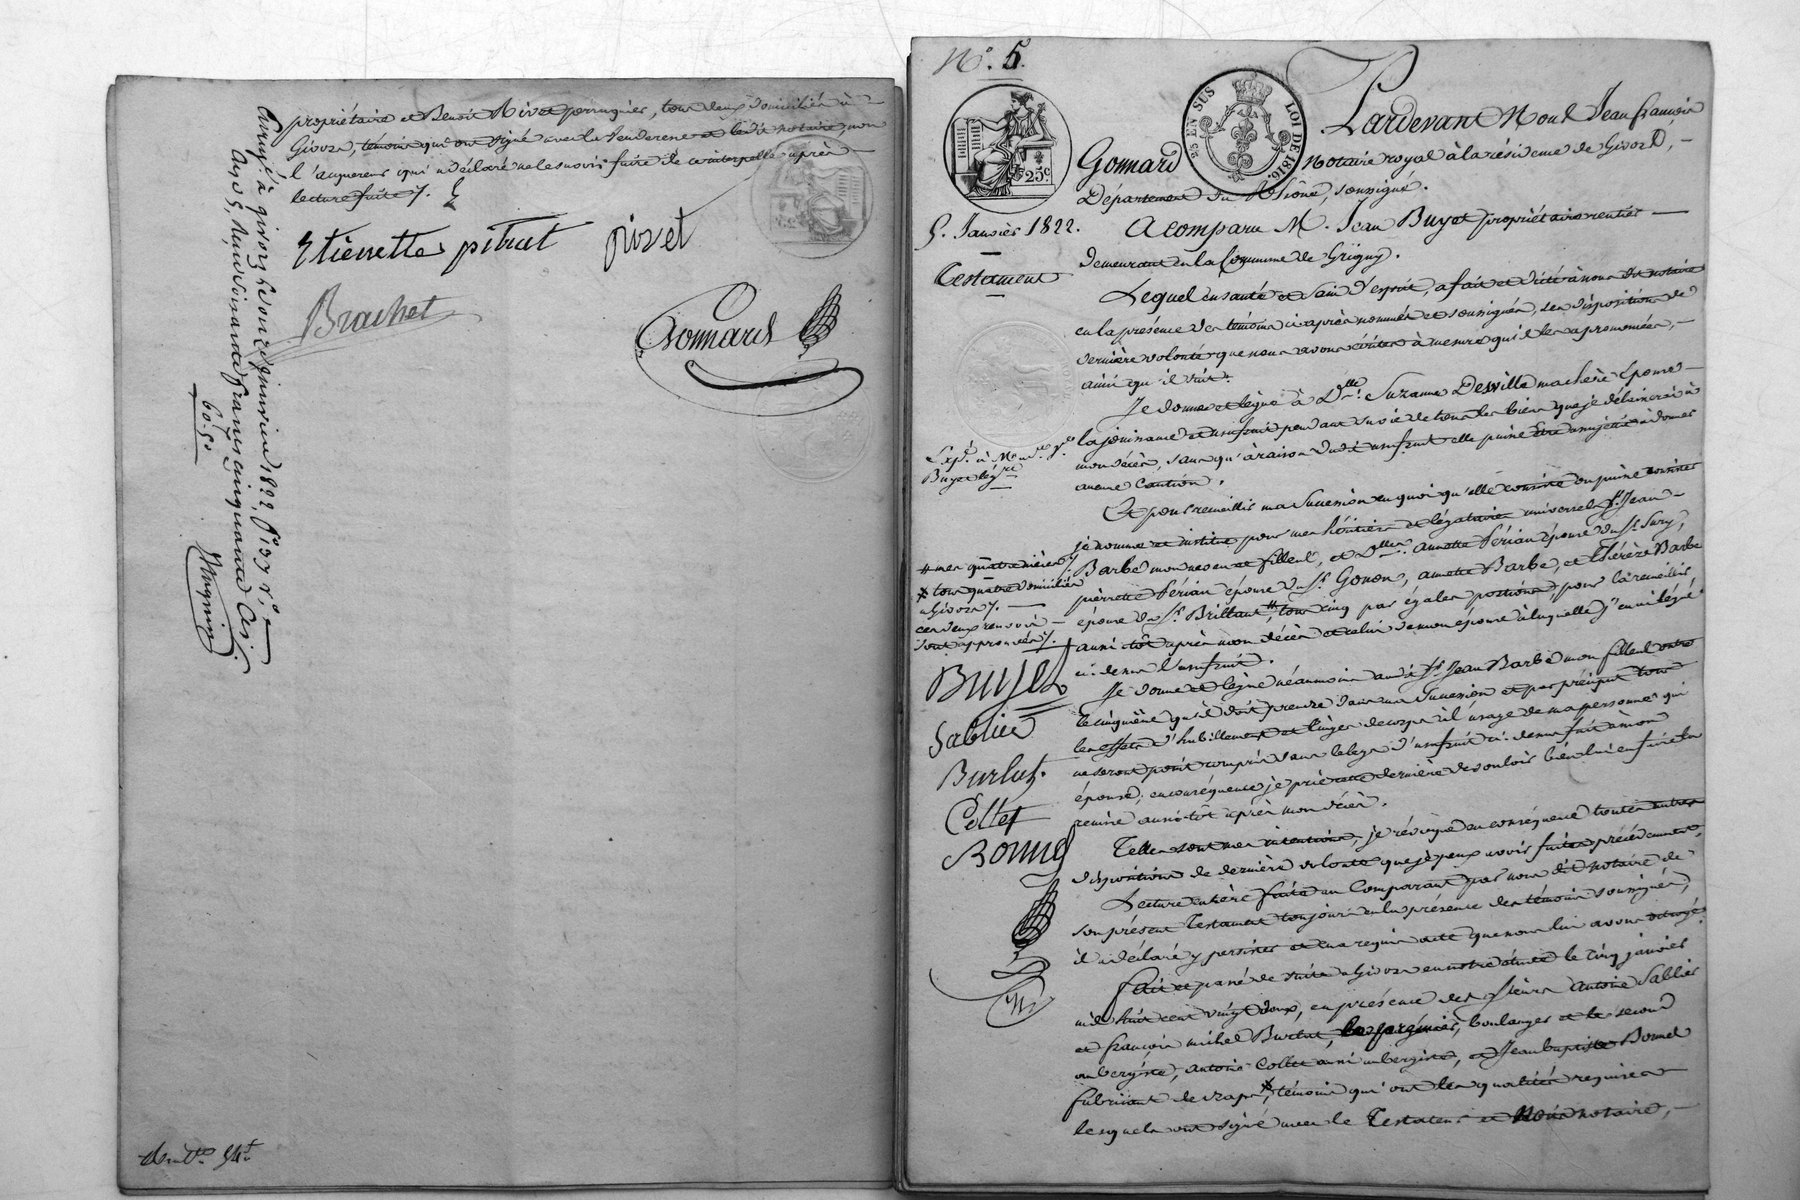 propriétaire et Benoit Rivet perruquier, tous deux domiciliés à
Givors, témoins qui ont signé avec la venderesse et ledit notaire, non
l'acquereur qui a déclaré ne le savoir faire de ce interpellé après
lecture faite ./.
Etiennette pitrat
rivet
Brachet
Gonnard
Enregé à givors le onze janvier 1822. fo
reçu cinquante francs cinquante cent
60.50
N.° 5.
25 EN SUS
LOI DE 1816.
25c
Pardevant Nous Jean françois
Gonnard notaire royal à la résidence de Givors,
Département du Rhône, soussigné.
5. Janvier 1822.
A comparu M. Jean Buyet propriétaire rentier
Testament
demeurant en la Commune de Grigny.
Lequel en santé et sain d'esprit, a fait et dicté à nous dit notaire
en la présence des témoins ci après nommés et soussignés, ses dispositions de
dernière volonté que nous avons écrites à mesure qu'il les a prononcées,
ainsi qu'il suit.
Je donne et lègue à Dlle. Suzanne Desville ma chère épouse
la jouissance et usufruit pendant sa vie de tous les biens que je délaisserai à
mon décès, sans qu'à raison dudit usufruit elle puisse être assujettie à donner
aucune Caution.
Expn. à Me ve.
Buyet légre
Et pour recueillir ma succession en quoi qu'elle consiste ou puisse consister
je nomme et institue pour mes héritiers et légataires universels sr. Jean
Barbe mon neveu et filleul, et Dlles. annette Périan épouse du sr. Sury,
pierrette Périan épouse du sr. Gonon, annette Barbe, et thérèse Barbe
épouse du sr. Brillant, tous cinq par égales portions, pour la recueillir
aussitôt après mon décès et celui de mon épouse à laquelle j'en ai légué
ci-dessus l'usufruit.
# mes quatre nièces ./.
* tous quatre domiciliés
à Givors ./.
ces deux renvois
sont approuvés ./.
Buyet
Sablier
Burlat.
Collet
Bonnel
Je donne et lègue néanmoins audit sr. Jean Barbe mon filleul outre
le cinquième qu'il doit prendre dans ma succession et par préciput tous
les effets d'habillement et linges de corps à l'usage de ma personne qui
ne seront point compris dans le legs d'usufruit ci-dessus fait à mon
épouse; en conséquence je prie cette dernière de vouloir bien lui en faire la
remise aussitôt après mon décès.
Telles sont mes intentions, je révoque en conséquence toutes autres
dispositions de dernière volonté que je peux avoir faites précédemment.
Lecture entière faite au Comparant par nous dit notaire de
son présent Testament toujours en la présence des témoins soussignés,
il a déclaré y persister et en a requis acte que nous lui avons octroyé.
Fait et passé de suite à Givors en notre étude le cinq janvier
mil huit cent vingt deux, en présence des sieurs Antoine Sablier
et françois michel Burlat, boulanger et le second
aubergiste, antoine Collet aussi aubergiste, et Jean baptiste Bonnel
fabricant de draps,* témoins qui ont les qualités requises
lesquels ont signé avec le Testateur et Nous notaire,